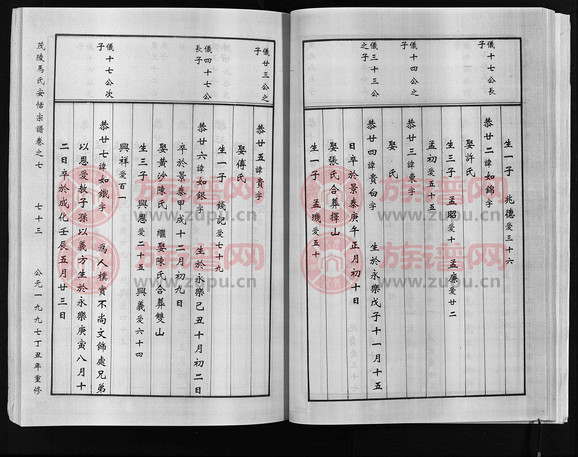 儀十七公長
子
儀十四公之
子
儀三十三公
之子
生一子 兆德受三十六
恭廿二諱如錦字
娶許氏
生三子 孟昭受十 孟廉受廿二
孟初受五十五
恭廿三諱東字
娶 氏
恭廿四諱貴白字 生於永樂戊子十一月十五
日卒於景泰庚午正月初十日
娶張氏合葬擇山
生一子 孟璣受五十
儀廿三公之
子
儀四十七公
長子
儀十七公次
子
恭廿五諱貴字
娶傅氏
生一子 錢記受七十九
恭廿六諱如銀字 生於永樂己丑十月初二日
卒於景泰甲戌十二月初九日
娶黄沙陳氏 繼娶陳氏合葬雙山
生三子 興恩受二十五 興義受六十四
興祥受百一
恭廿七諱如鐵字 為人樸實不尚文飾處兄弟
以恩愛教子孫以義方生於永樂庚寅八月十
二日卒於成化壬辰五月廿三日
茂陵馬氏安恬宗譜卷之七 七十三 公元一九九七丁丑年重修
族谱网
www.zupu.cn
族谱网
www.zupu.cn
族谱网
www.zupu.cn
族谱网
www.zupu.cn